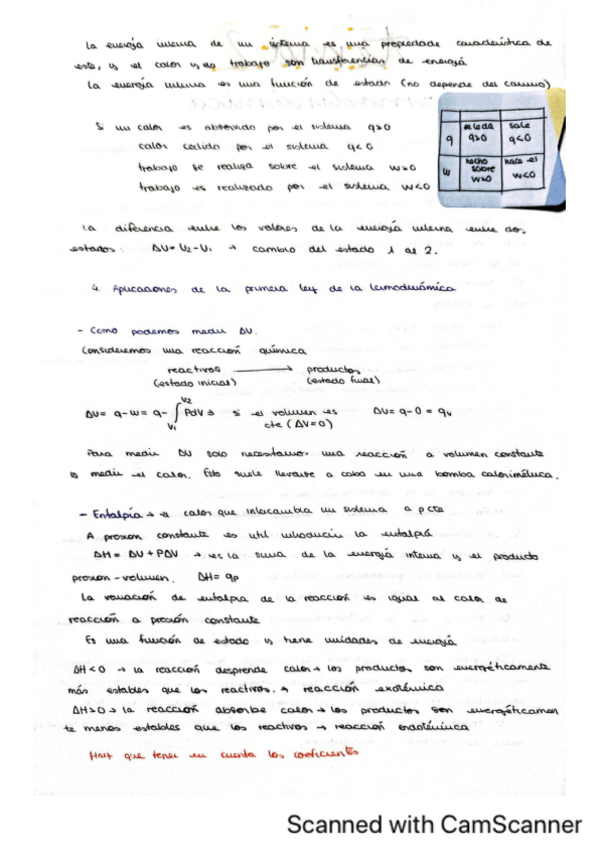 La energía interna de un sistema es una propiedade característica de
este, y el calor y no trabajo son transferencias de energía
La energía interna es una función de estado (no depende del camino)
Si un calor es absorvido por el sistema q>0
calor cedido por el sistema q<0
trabajo se realiza sobre el sistema w>0
trabajo es realizado por el sistema w<0
q se le da q>0 sale q<0
w hecho sobre w>0 hace el w<0
La diferencia entre los valores de la energía interna entre dos
estados: ΔU= U2-U1 → cambio del estado 1 al 2.
4. Aplicaciones de la primera ley de la termodinámica
- Como podemos medir ΔU.
Consideremos una reacción química
reactivos → productos
(estado inicial) (estado final)
ΔU= q-w = q- ∫ V1 V2 PdV ⇒ si el volumen es cte (ΔV=0) ΔU= q-0 = qv
Para medir ΔU solo necesitamos una reacción a volumen constante
y medir el calor. Esto suele llevarse a cabo en una bomba calorimétrica.
- Entalpía → el calor que intercambia un sistema a p cte
A presion constante es util introducir la entalpía
ΔH = ΔU + PΔV → es la suma de la energía interna y el producto
presion-volumen. ΔH= qp
La variación de entalpia de la reacción es igual al calor de
reacción a presión constante
Es una función de estado y tiene unidades de energía
ΔH<0 → la reacción desprende calor → los productos son energéticamente
más estables que los reactivos. → reacción exotérmica
ΔH>0 → la reacción absorbe calor → los productos son energéticamen
te menos estables que los reactivos → reacción endotérmica
Hay que tener en cuenta los coeficientes
Scanned with CamScanner